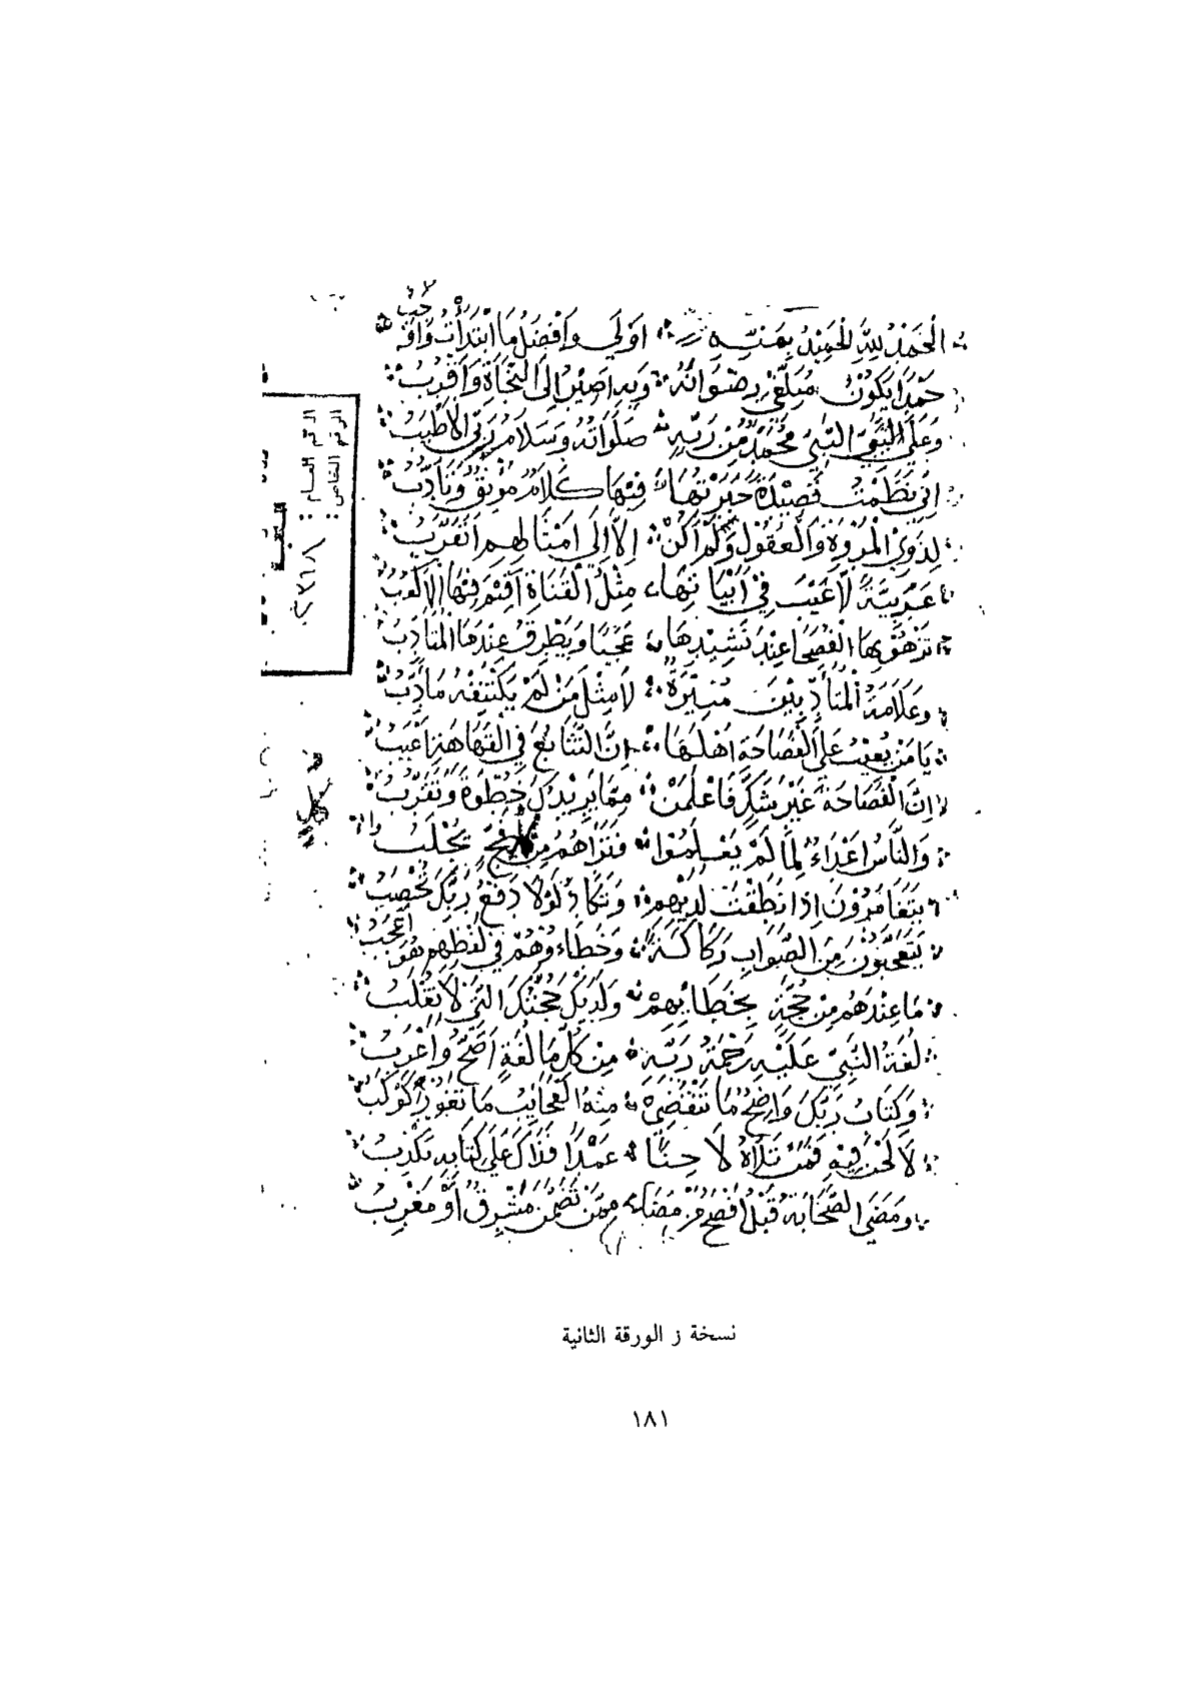 الْحَمْدُ لِلَّهِ الْحَمِيدِ بِمَنِّهِ أَوْلَى وَأَفْضَلُ مَا ابْتَدَأْتُ وَأَوْجَبُ
حَمْدًا يَكُونُ مُبَلِّغِي رِضْوَانَهُ وَبِهِ أَصِيرُ إِلَى النَّجَاةِ وَأَقْرُبُ
وَعَلَى النَّبِيِّ مُحَمَّدٍ مِنْ رَبِّهِ صَلَوَاتُهُ وَسَلَامُ رَبِّي الْأَطْيَبُ
إِنِّي نَظَمْتُ قَصِيدَةً حَبَّرْتُهَا فِيهَا كَلَامٌ مُونِقٌ وَتَأَدُّبُ
لِذَوِي الْمُرُوَّةِ وَالْعُقُولِ وَلَمْ أَكُنْ إِلَّا إِلَى أَمْثَالِهِمْ أَتَقَرَّبُ
عَرَبِيَّةً لَا عَيْبَ فِي أَبْيَاتِهَا مِثْلُ الْقَنَاةِ أُقِيمَ فِيهَا الْأَكْعُبُ
تَزْهُو بِهَا الْفُصَحَا عِنْدَ نَشِيدِهَا عَجَبًا وَيَطْرِقُ عِنْدَهَا الْمُتَأَدِّبُ
وَعَلَامَةُ الْمُتَأَدِّبِينَ مُنِيرَةٌ لَا مِثْلَ مَنْ لَمْ يَكْتَنِفْهُ مَأْدَبُ
يَا مَنْ يَعِيبُ عَلَى الْفَصَاحَةِ أَهْلَهَا إِنَّ التَّتَابُعَ فِي الْفَهَاهَةِ أَعْيَبُ
إِنَّ الْفَصَاحَةَ غَيْرَ شَكٍّ فَاعْلَمَنْ مِمَّا يَزِيدُكَ خُطْوَةً وَتُقَرِّبُ
وَالنَّاسُ أَعْدَاءٌ لِمَا لَمْ يَعْلَمُوا فَتَرَاهُمُ مِنْ كُلِّ فَجٍّ يُجْلَبُوا
يَتَغَامَزُونَ إِذَا نَطَقْتَ لَدَيْهِمُ وَتَكَادُ لَوْلَا دَفْعُ رَبِّكَ تُحْصَبُ
يَتَعَجَّبُونَ مِنَ الصَّوَابِ رَكَاكَةً وَخَطَاؤُهُمْ فِي لَفْظِهِمْ هُوَ أَعْجَبُ
مَا عِنْدَهُمْ مِنْ حُجَّةٍ بِخَطَائِهِمْ وَلَدَيْكَ حُجَّتُكَ الَّتِي لَا تُقْلَبُ
لُغَةُ النَّبِيِّ عَلَيْهِ رَحْمَةُ رَبِّهِ مِنْ كُلِّ مَا لُغَةٍ أَصَحُّ وَأَعْرَبُ
وَكِتَابُ رَبِّكَ وَاضِحٌ مَا تَنْقَضِي مِنْهُ الْعَجَائِبُ مَا تَغَوَّرَ كَوْكَبُ
لَا لَحْنَ فِيهِ فَمَنْ تَلَاهُ لَاحِنًا عَمْدًا فَذَاكَ عَلَى كِتَابِهِ يَكْذِبُ
وَمَضَى الصَّحَابَةُ قَبْلُ أَفْصَحُ مَنْ مَضَى مِمَّنْ تَضَمَّنَ مَشْرِقٌ أَوْ مَغْرِبُ
الرقم العام :
الرقم الخاص :
نسخة ز الورقة الثانية
١٨١